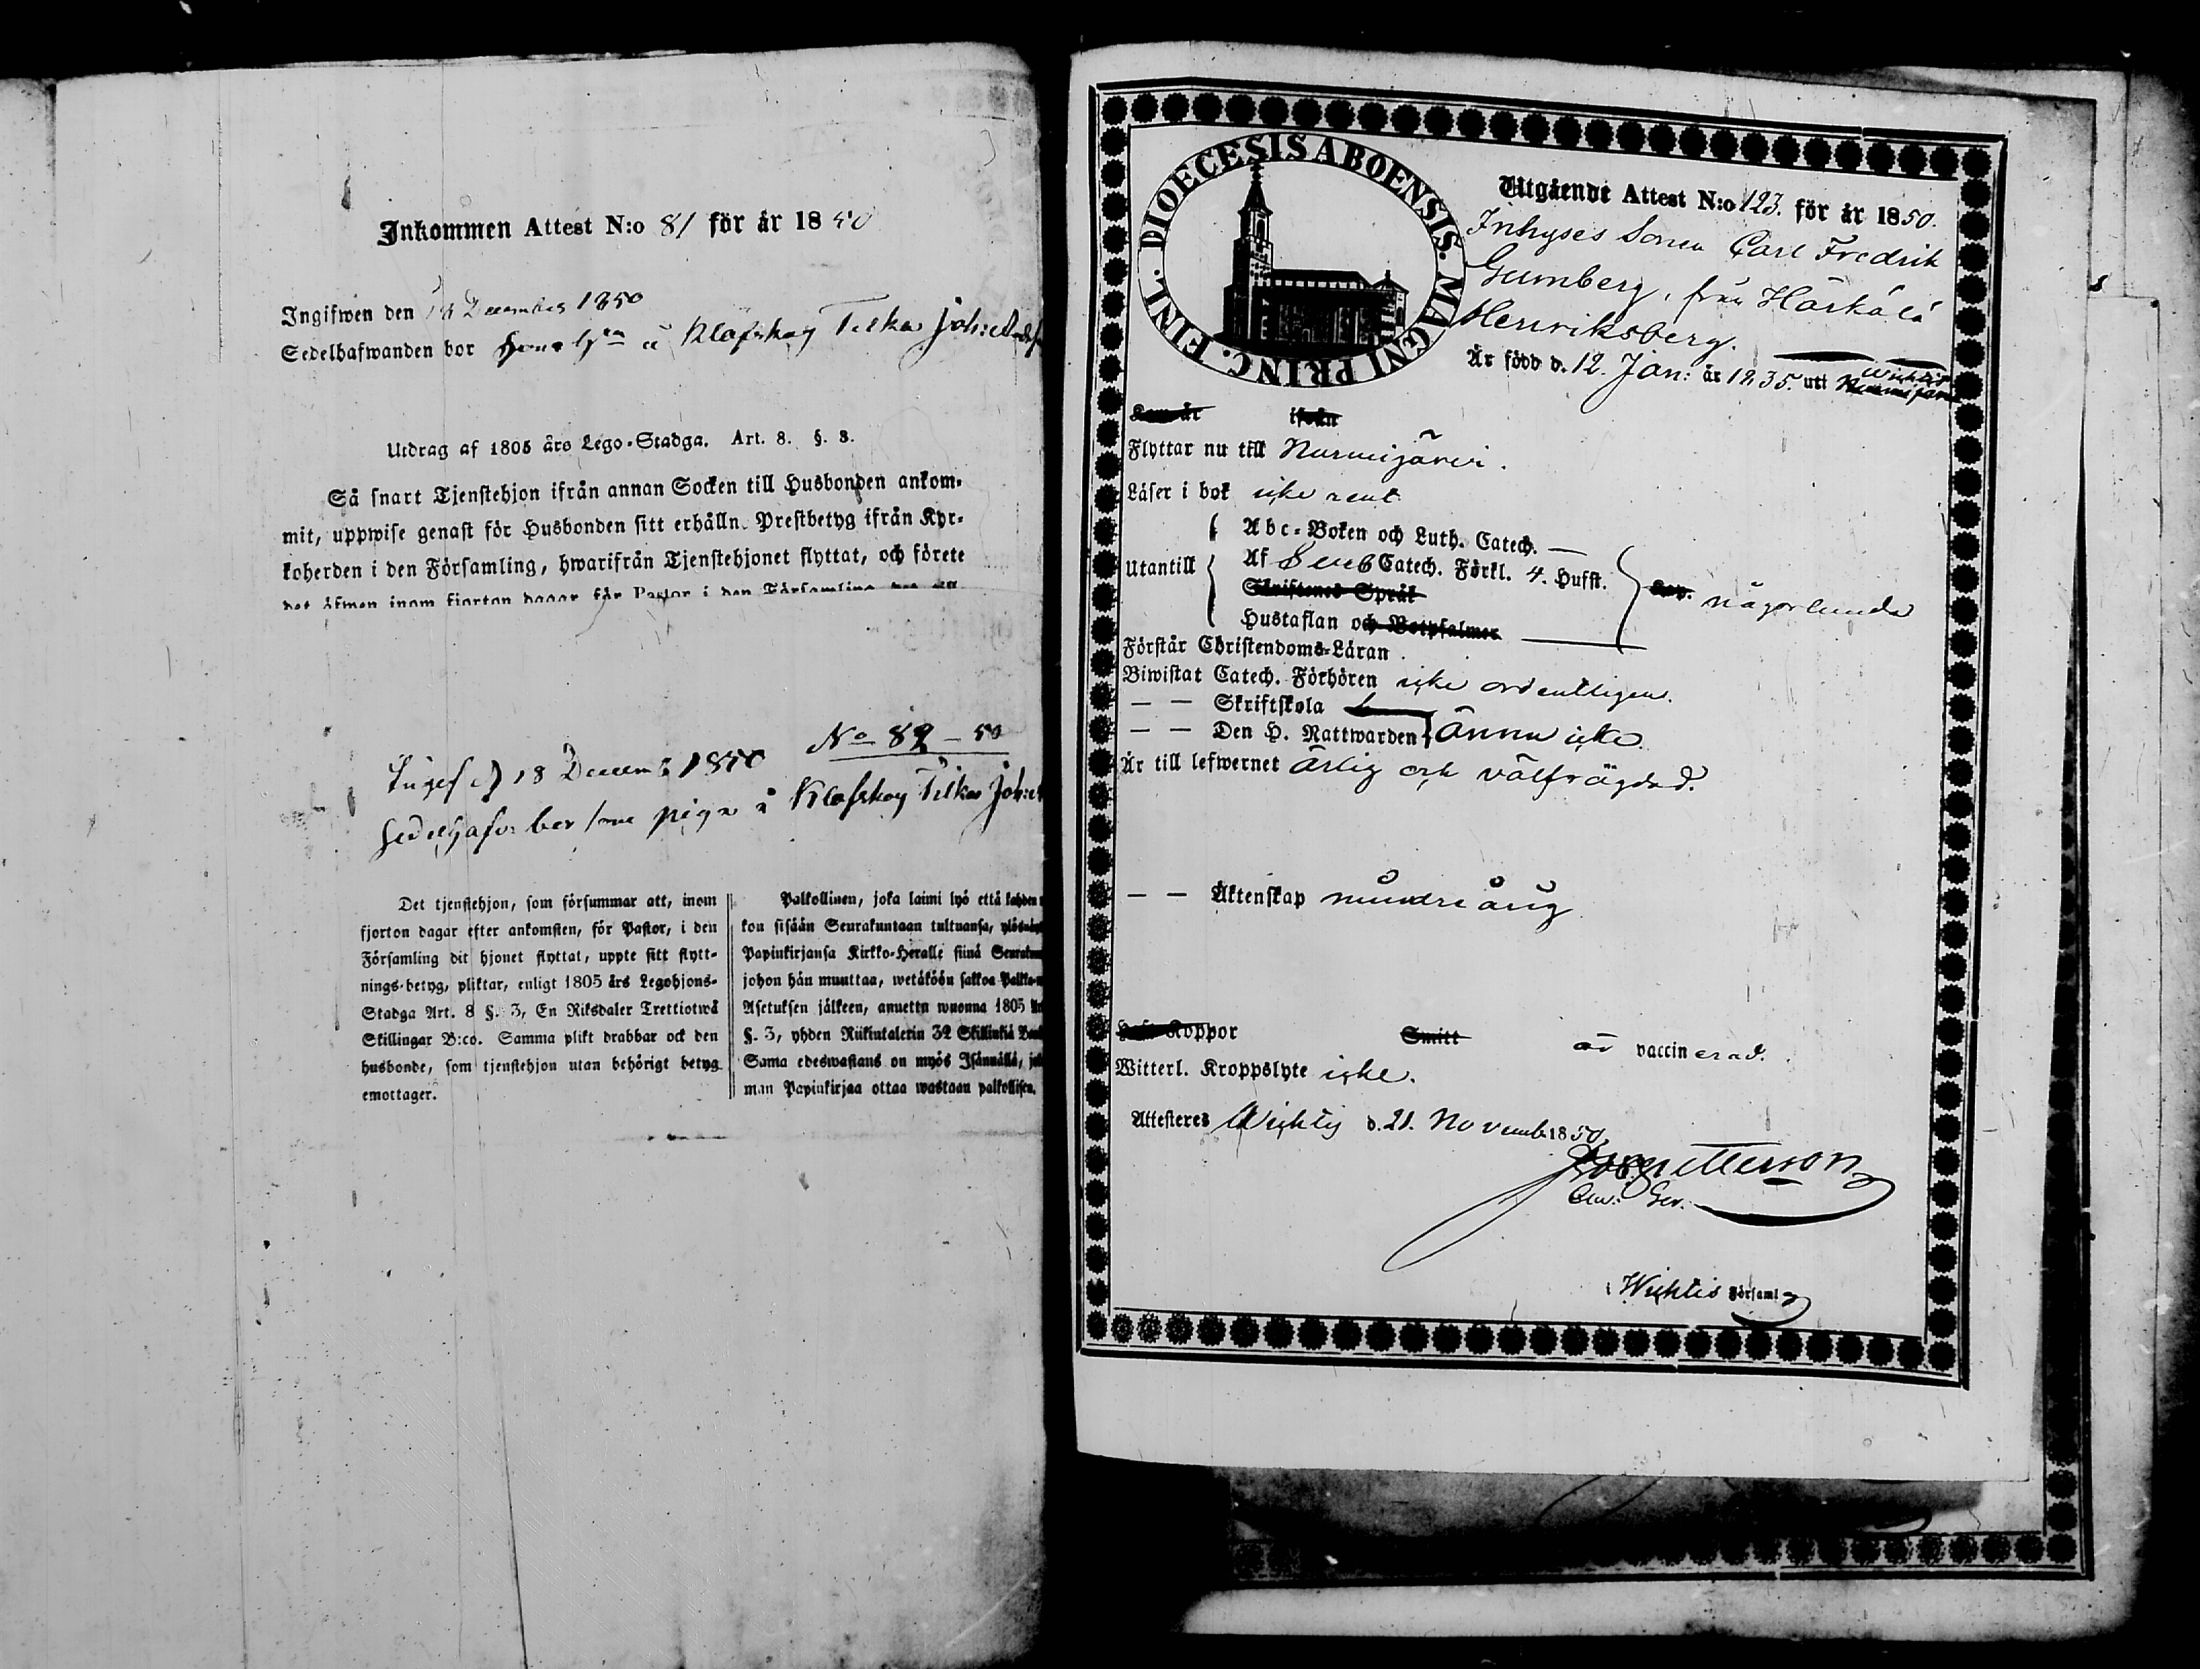 Inkommen Attest N:o 81 för år 1850
Ingifwen den 18 December 1850
Sedelhafwanden bor å Klafskog Tilkas Joh:
Utdrag af 1805 års Lego-Stadga. Art. 8. §. 3.
Så snart Tjenstehjon ifrån annan Socken till Husbonden ankom-
mit, uppwise genast för Husbonden sitt erhålln. Prestbetyg ifrån Kyr-
koherden i den Församling, hwarifrån Tjenstehjonet flyttat, och förete
det äfwen inom fjorton dagar för Pastor i den Församling
No 82 - 50
Ingif d 18 Decemb 1850
sedelhafv: bor som piga å Klafskog Tilkas Joh:
Det tjenstehjon, som försummar att, inom
fjorton dagar efter ankomsten, för Pastor, i den
Församling dit hjonet flyttat, uppte sitt flytt-
nings-betyg, pliktar, enligt 1805 års Legohjons-
Stadga Art. 8 §. 3, En Riksdaler Trettiotwå
Skillingar B:co. Samma plikt drabbar ock den
husbonde, som tjenstehjon utan behörigt betyg
emottager.
Palkollinen, joka laimi lyö että kahden
kon sisään Seurakuntaan tultuansa, ylösnäyt
Papinkirjansa Kirkko-Heralle siinä Seurakun
johon hän muuttaa, wetäköön sakkoa Palkka-
Asetuksen jälkeen, annettu wuonna 1805
§. 3, yhden Riikintalerin 32 Skillinkiä
Sama edeswastaus on myös Isännällä,
man Papinkirjaa ottaa wastaan palkollisen.
DIOECESIS ABOENSIS. MAGNI PRINC. FINL.
Utgående Attest N:o 123. för år 1850.
Inhyses Sonen Carl Fredrik
Gumberg, från Härkälä
Henriksberg.
Är född d. 12. Jan: år 1835. uti Wichtis
Kom år ifrån
Flyttar nu till Nurmijärvi.
Läser i bok icke rent
Abc-Boken och Luth. Catech. —
Utantill Af Sveb Catech. Förkl. 4. Hufst.
Skriftenes Språk
Hustaflan och Botpsalmer
någorlunda
Förstår Christendoms-Läran
Biwistat Catech. Förhören icke ordentligen.
— — Skriftskola
— — Den H. Nattwarden ännu icke.
Är till lefwernet ärlig och välfrägdad.
— — Äktenskap minderårig
Koppor Smitt är vaccinerad.
Witterl. Kroppslyte icke.
Attesteres Wichtis d. 21. Novemb. 1850.
i Wichtis Församl